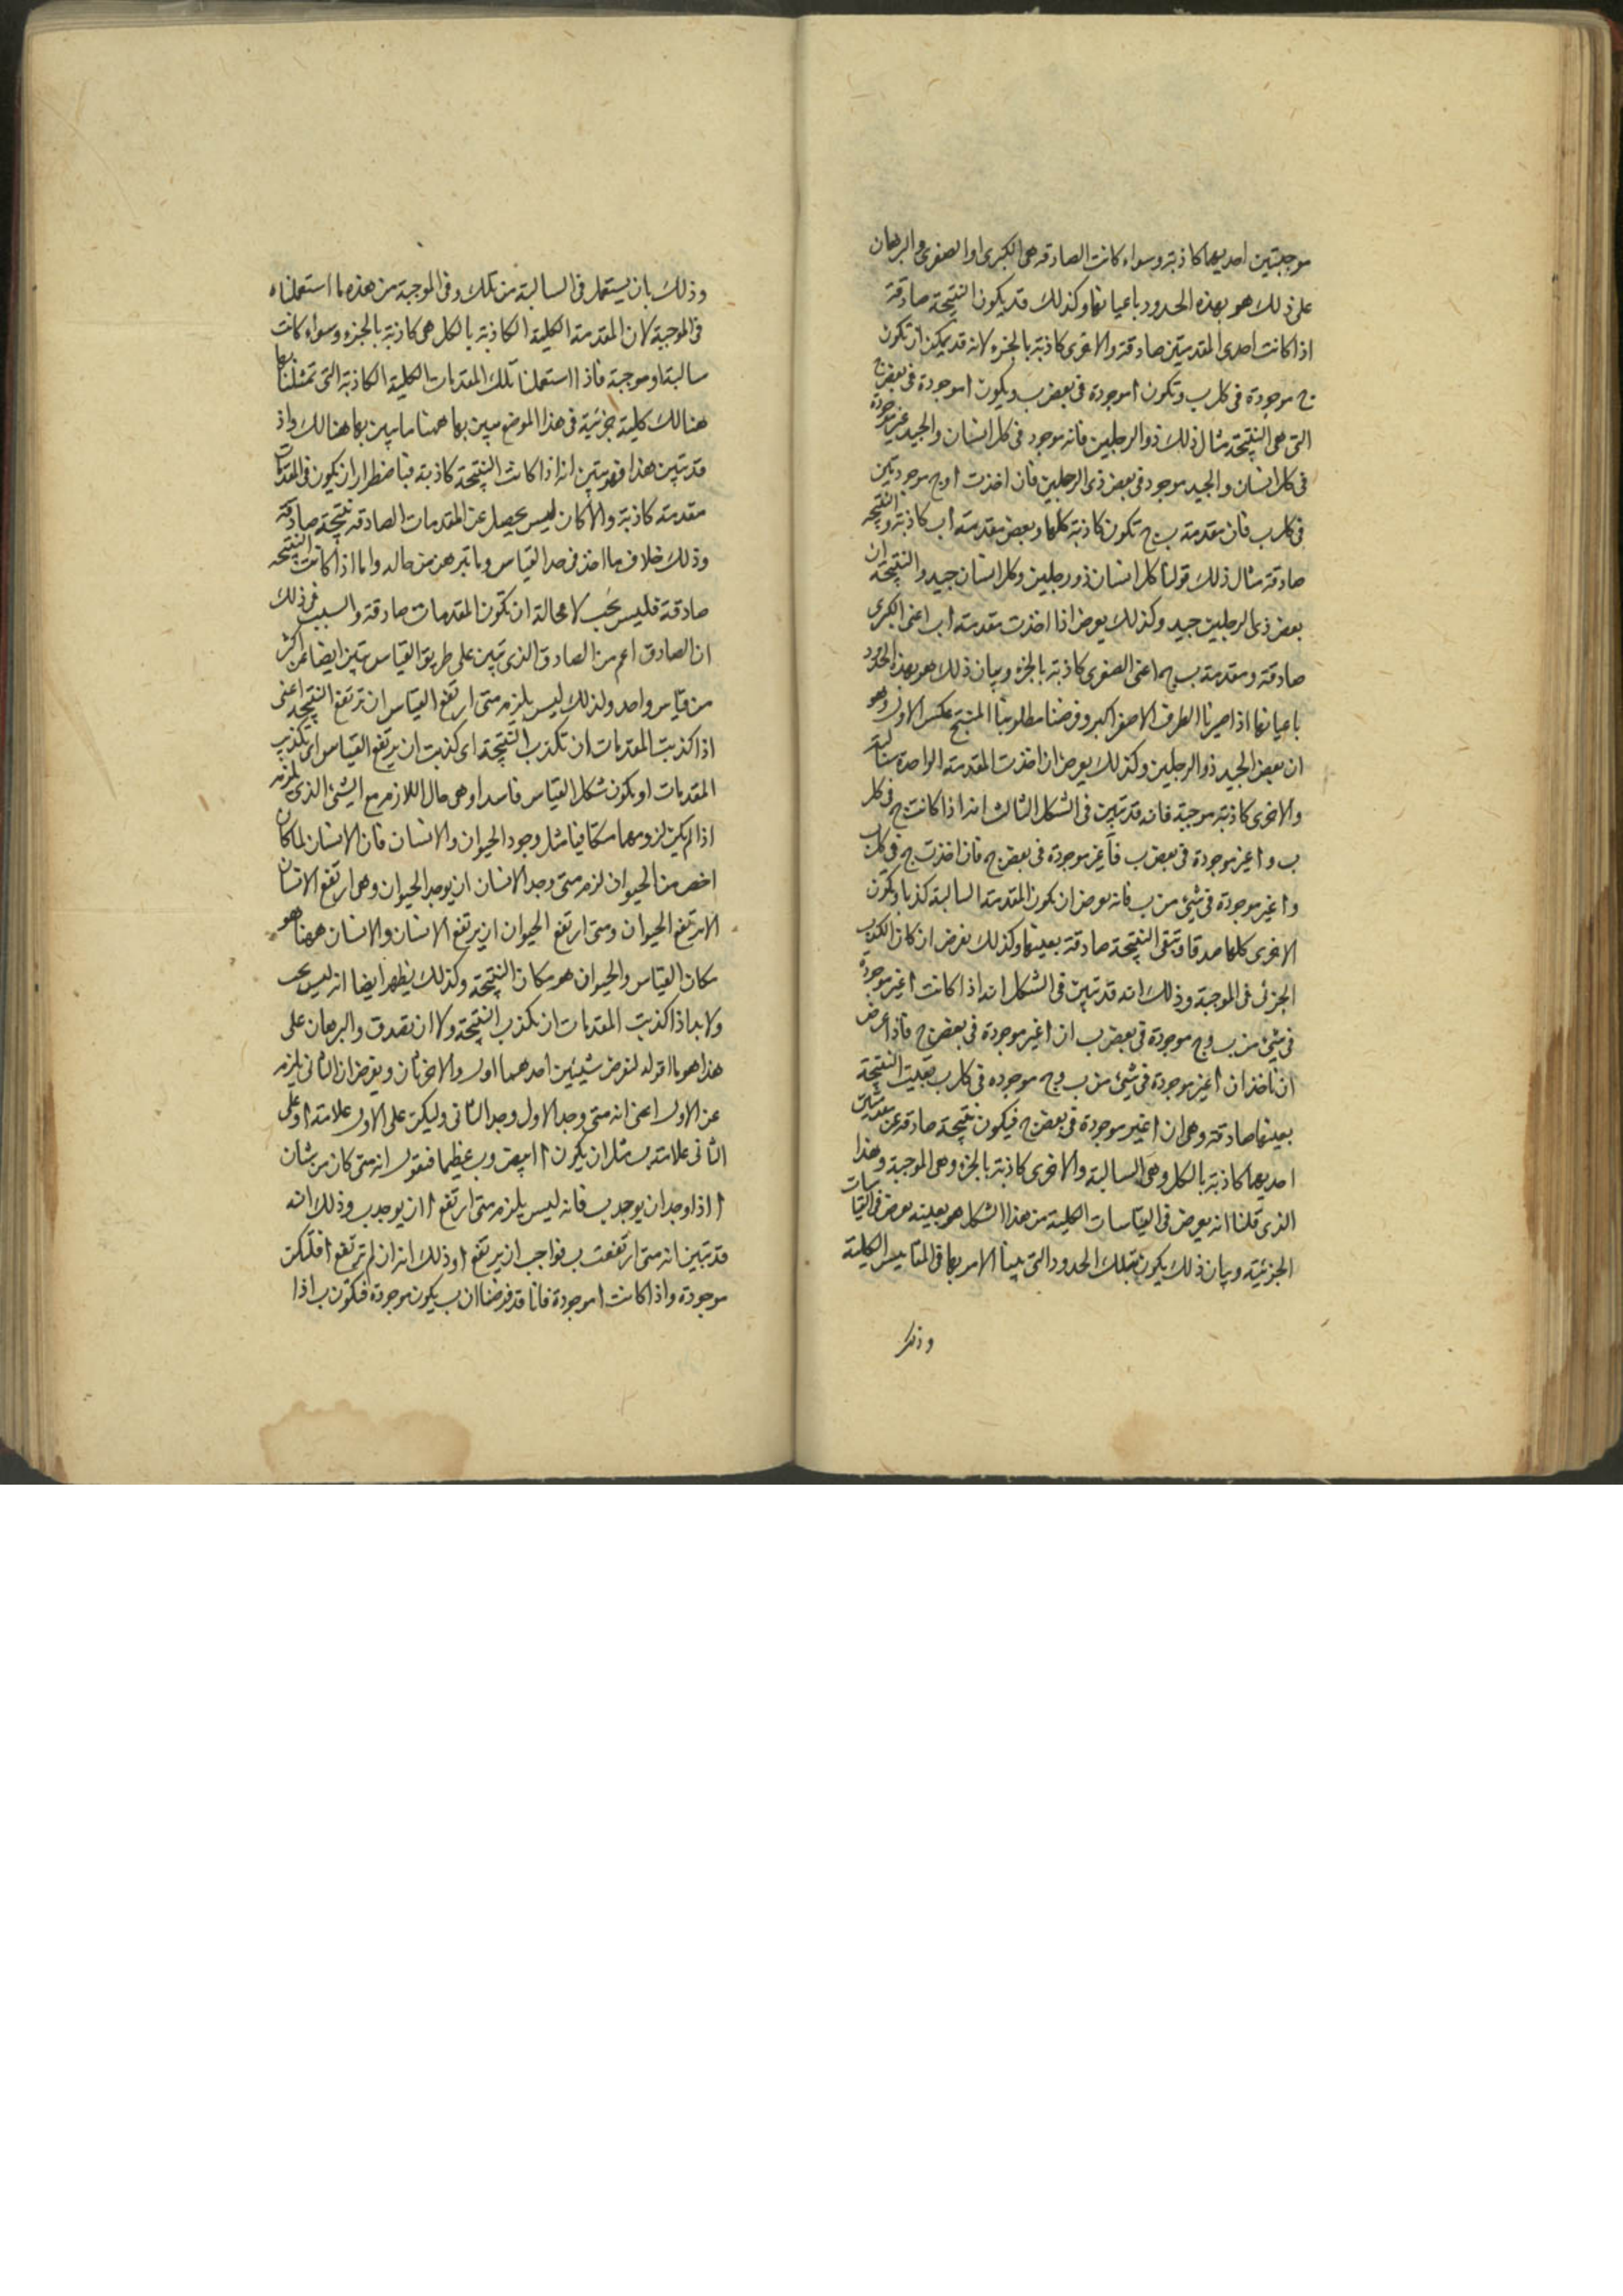 موجبتين احديهما كاذبة وسواء كانت الصادقة هى الكبرى او الصغرى والبرهان
على ذلك هو بهذه الحدود باعيانها وكذلك قد يكون النتيجة صادقة
اذا كانت احدى المقدمتين صادقة والاخرى كاذبة بالجزء لانه قد يمكن ان تكون
ج موجودة فى كل ب وتكون ا موجودة فى بعض ب ويكون ا موجودة فى بعض ج
التى هى النتيجة مثال ذلك ذو الرجلين فانه موجود فى كل انسان والجيد غير موجودة
فى كل انسان والجيد موجود فى بعض ذى الرجلين فان اخذت ا وج موجودتين
فى كل ب فان مقدمة ب ج تكون كاذبة كلها وبعض مقدمة اب كاذبة والنتيجة
صادقة مثال ذلك قولنا كل انسان ذو رجلين وكل انسان جيد والنتيجة ان
بعض ذى الرجلين جيد وكذلك يعرض اذا اخذت مقدمة اب اعنى الكبرى
صادقة ومقدمة ب ج اعنى الصغرى كاذبة بالجزء وبيان ذلك هو بهذه الحدود
باعيانها اذا صيرنا الطرف الاصغر اكبر وفرضنا مطلوبنا المنتج عكس الاول وهو
ان بعض الجيد ذو الرجلين وكذلك يعرض ان اخذت المقدمة الواحدة سالبة
والاخرى كاذبة موجبة فانه قد تبين فى الشكل الثالث انه اذا كانت ج فى كل
ب وا غير موجودة فى بعض ب فا غير موجودة فى بعض ج فان اخذت ج فى كل ب
وا غير موجودة فى شئ من ب فانه يعرض ان يكون المقدمة السالبة كذبا وتكون
الاخرى كلها صدقا وتبقى النتيجة صادقة بعينها وكذلك يعرض ان كان الكذب
الجزئى فى الموجبة وذلك انه قد تبين فى الشكل انه اذا كانت ا غير موجودة
فى شئ من ب وج موجودة فى بعض ب ان ا غير موجودة فى بعض ج فاذا عرض
ان ناخذ ان ا غير موجودة فى شئ من ب وج موجوده فى كل ب بقيت النتيجة
بعينها صادقة وهى ان ا غير موجودة فى بعض ج فيكون نتيجة صادقة عن مقدمتين
احديهما كاذبة بالكل وهى السالبة والاخرى كاذبة بالجزء وهى الموجبة وهذا
الذى قلنا انه يعرض فى القياسات الكلية من هذا الشكل هو بعينه يعرض فى القياسات
الجزئية وبيان ذلك يكون بتلك الحدود التى بينا الامر بها فى المقاييس الكلية
وذلك
وذلك بان يستعمل فى السالبة من تلك وفى الموجبة من هذه ما استعملناه
فى الموجبة لان المقدمة الكلية الكاذبة بالكل هى كاذبة بالجزء وسواء كانت
سالبة او موجبة فاذا استعملنا تلك المقدمات الكلية الكاذبة التى تمثلنا بها
هنالك كلية جزئية فى هذا الموضع بين بها ههنا ما بين بها هنالك واذ
قد تبين هذا فهو بين انه اذا كانت النتيجة كاذبة فباضطرار ان يكون فى المقدمات
مقدمة كاذبة والا كان ليس يحصل عن المقدمات الصادقة نتيجة صادقة
وذلك خلاف ما اخذ فى حد القياس وما تبرهن من حاله واما اذا كانت النتيجة
صادقة فليس يجب لا محالة ان تكون المقدمات صادقة والسبب فى ذلك
ان الصادق اعم من الصادق الذى تبين على طريق القياس تبين ايضا عن اكثر
من قياس واحد ولذلك ليس يلزم متى ارتفع القياس ان ترتفع النتيجة اعنى
اذا كذبت المقدمات ان تكذب النتيجة اى كذبت ان يرتفع القياس اى تكذب
المقدمات او يكون شكل القياس فاسدا وهى حال اللازم مع الشئ الذى يلزم
اذا لم يكن لزومهما متكافيا مثل وجود الحيوان والانسان فان الانسان لما كان
اخص من الحيوان لزم متى وجد الانسان ان يوجد الحيوان وهى ارتفع الانسان
لا يرتفع الحيوان ومتى ارتفع الحيوان ان يرتفع الانسان والانسان ههنا هو
مكان القياس والحيوان هو مكان النتيجة وكذلك يظهر ايضا انه ليس يجب
ولا بد اذا كذبت المقدمات ان تكذب النتيجة ولا ان تصدق والبرهان على
هذا هو ما اقوله لنفرض شيئين احدهما اول والاخر ثان ونفرض ان الثانى يلزم
عن الاول اعنى انه متى وجد الاول وجد الثانى وليكن على الاول علامة ا وعلى
الثانى علامة ب مثل ان يكون ا ابيض وب عظيما فنقول انه متى كان من شان
ا اذا وجد ان يوجد ب فانه ليس يلزم متى ارتفع ا ان يوجد ب وذلك انه
قد تبين انه متى ارتفعت ب فواجب ان يرتفع ا وذلك انه ان لم ترتفع ا فلتكن
موجودة واذا كانت ا موجودة فانا قد فرضنا ان ب يكون موجودة فتكون ب اذا